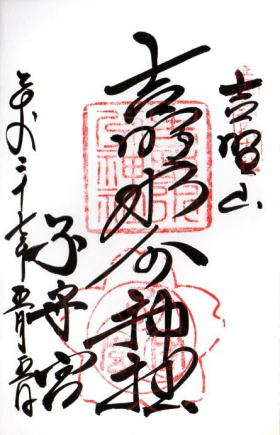 吉野山
吉野水分神社
子守宮
平成二十年五月五日